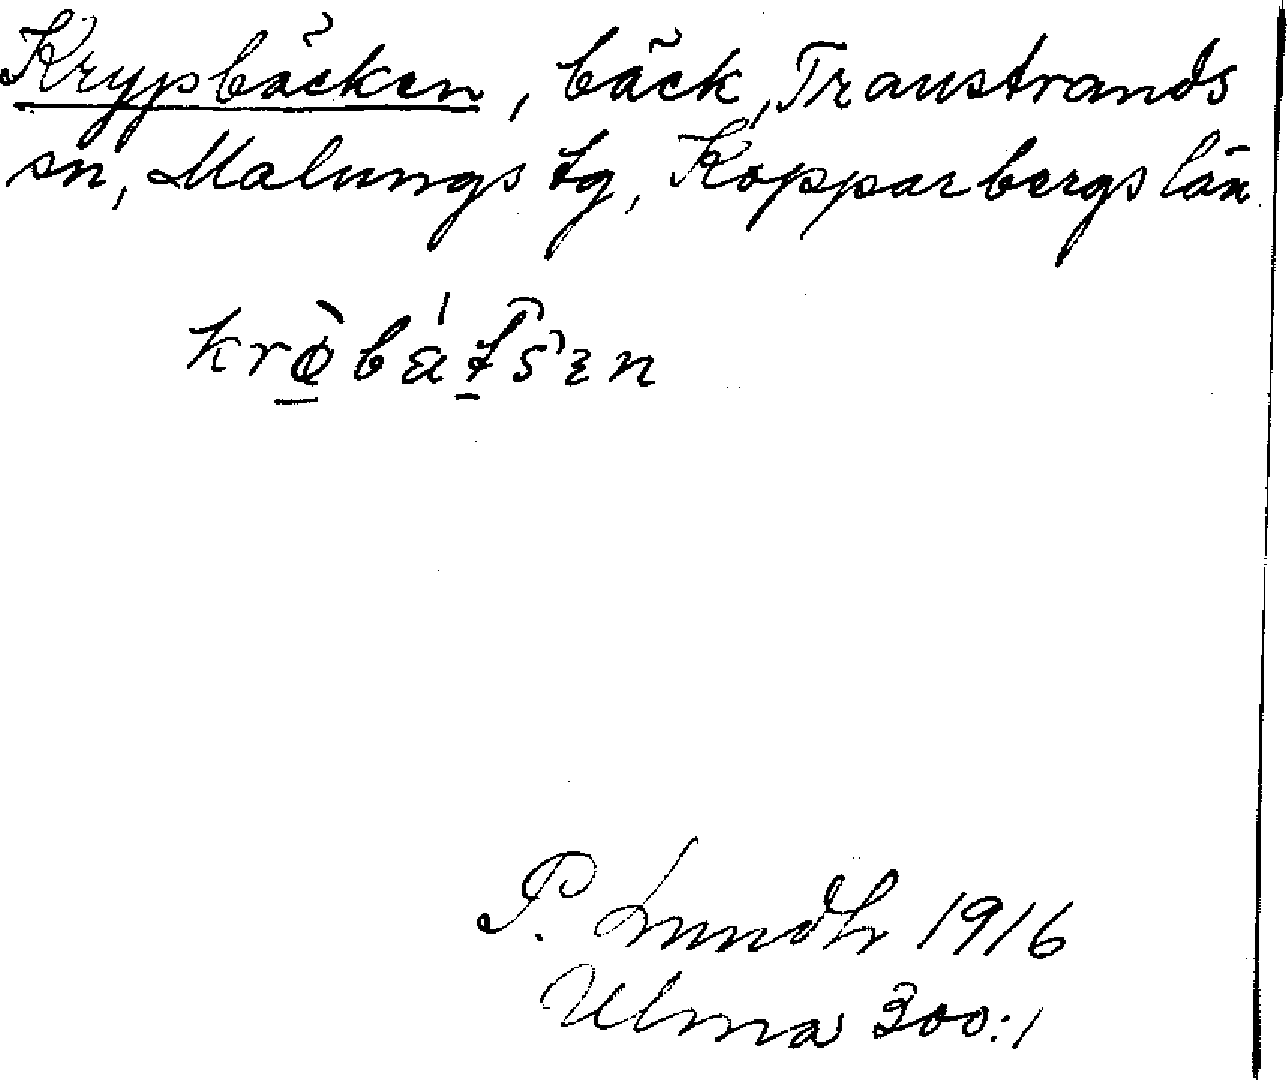 Krypbäcken, bäck, Transtrands
sn, Malungs tg, Kopparbergs län
P. Lundh 1916
Ulma 300:1